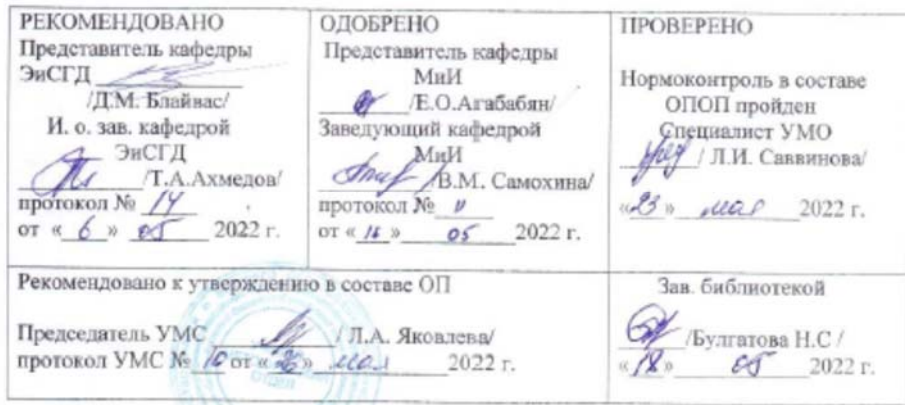 РЕКОМЕНДОВАНО
Представитель кафедры
ЭиСГД
/Д.М. Блайвас/
И. о. зав. кафедрой
ЭиСГД
/Т.А.Ахмедова/
протокол № 14
от « 6 » 05 2022 г.
ОДОБРЕНО
Представитель кафедры
МиИ
/Е.О.Агабабян/
Заведующий кафедрой
МиИ
/В.М. Самохина/
протокол № 11
от « 16 » 05 2022 г.
ПРОВЕРЕНО
Нормоконтроль в составе
ОПОП пройден
Специалист УМО
/ Л.И. Саввинова/
«23» мая 2022 г.
Рекомендовано к утверждению в составе ОП
Председатель УМС / Л.А. Яковлева/
протокол УМС № 10 от «26» мая 2022 г.
Зав. библиотекой
/Булгатова Н.С /
«18» 05 2022 г.